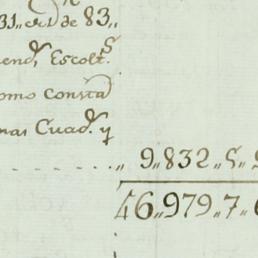 31,, en 1 de 83,,
end.s Escolt.s
omo consta
mas Cuad.s y
,, 9,,832,,5,,
46,,979,,7,,